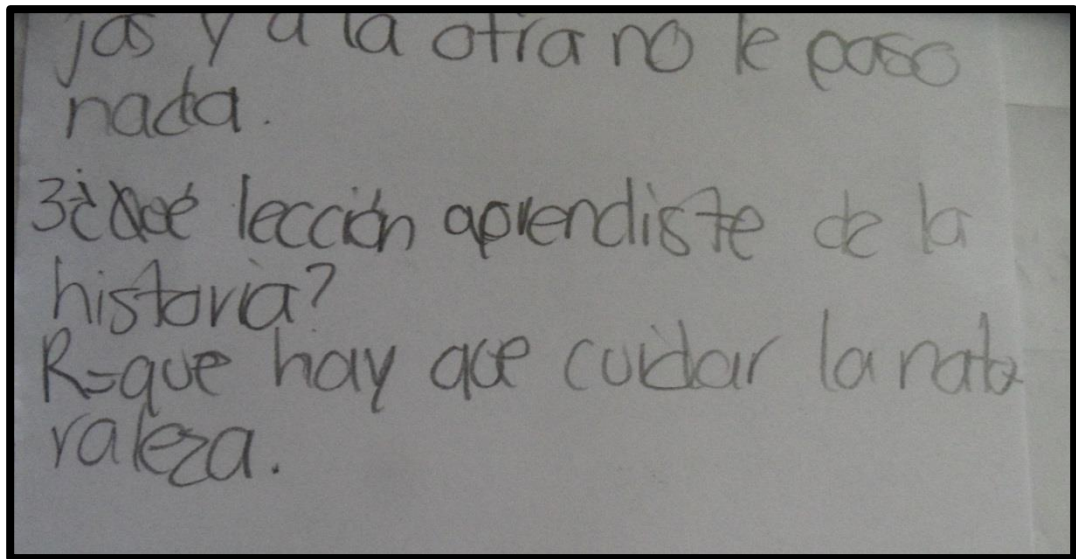 jas y a la otra no le paso
nada.
3¿Qué lección aprendiste de la
historia?
R=que hay que cuidar la natu
raleza.